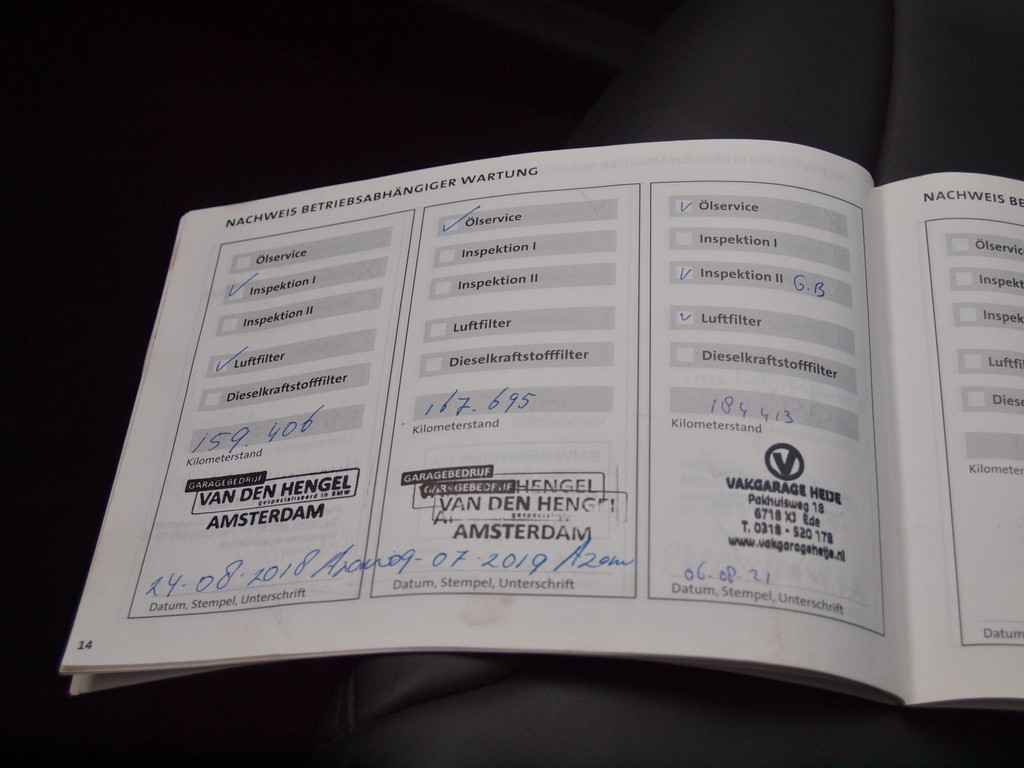 NACHWEIS BETRIEBSABHÄNGIGER WARTUNG
Ölservice
Inspektion I
Inspektion II
Luftfilter
Dieselkraftstofffilter
159.406
Kilometerstand
GARAGEBEDRIJF
VAN DEN HENGEL
gespecialiseerd in BMW
AMSTERDAM
24-08-2018 Azam
Datum, Stempel, Unterschrift
14
Ölservice
Inspektion I
Inspektion II
Luftfilter
Dieselkraftstofffilter
167.695
Kilometerstand
GARAGEBEDRIJF
GARAGEBEDRIJF HENGEL
VAN DEN HENGEL
AMSTERDAM
09-07-2019 Azam
Datum, Stempel, Unterschrift
Ölservice
Inspektion I
Inspektion II G.B
Luftfilter
Dieselkraftstofffilter
184413
Kilometerstand
V
VAKGARAGE HEIJE
Pakhuisweg 18
6718 XJ Ede
T. 0318 - 520 178
www.vakgarageheije.nl
06-08-21
Datum, Stempel, Unterschrift
NACHWEIS BE
Ölservic
Inspekt
Inspek
Luftfil
Diese
Kilometer
Datum